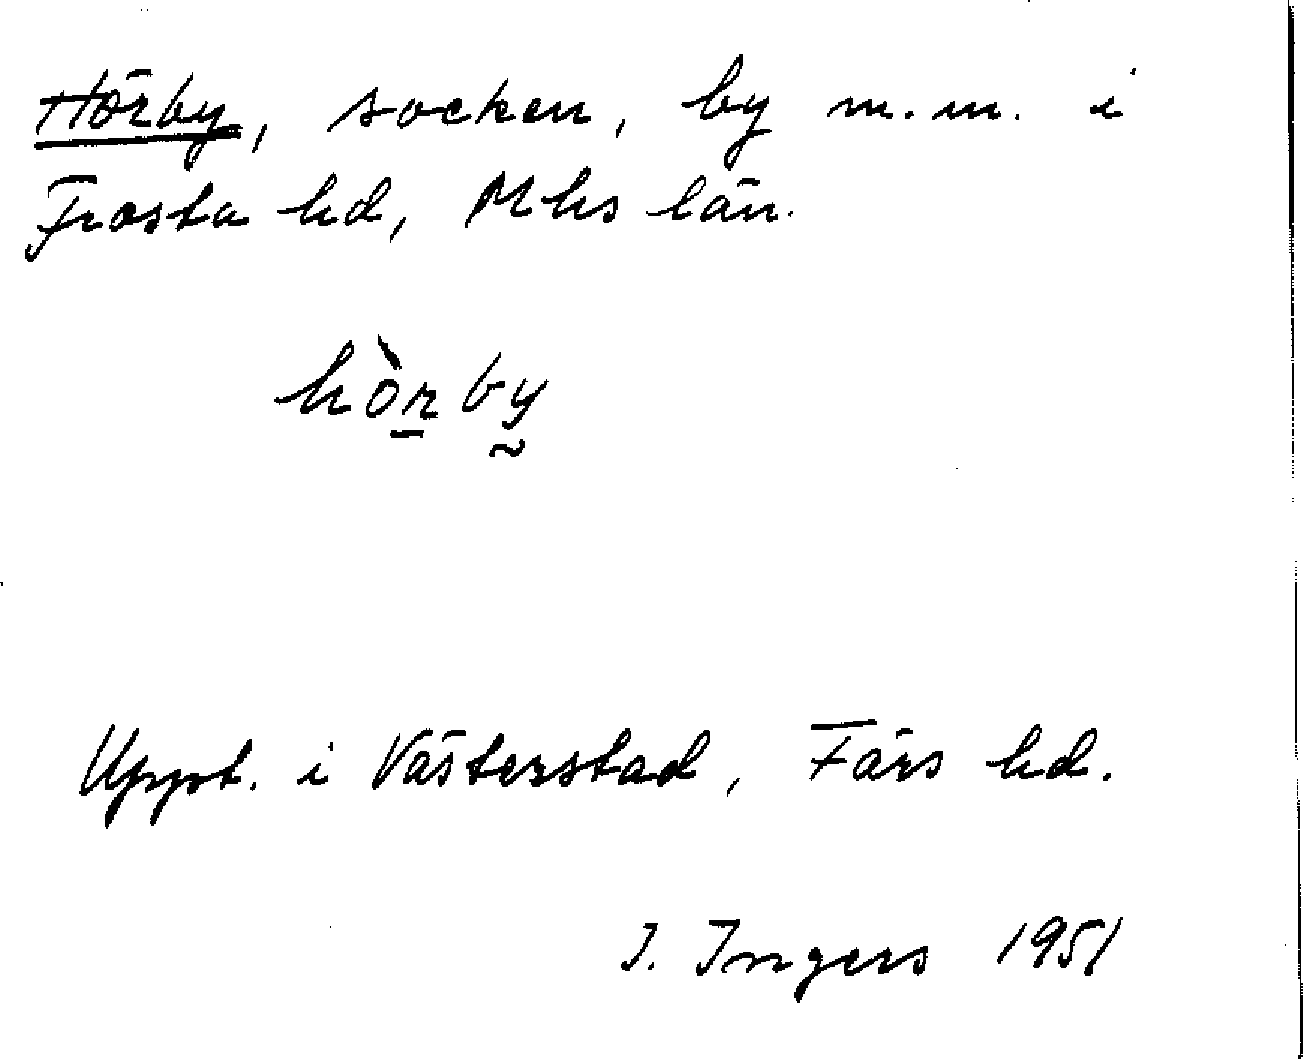 Hörby, socken, by m.m. i
Frosta hd, Mhs län.
hòrby
Uppt. i Västerstad, Färs hd.
I. Ingers 1951